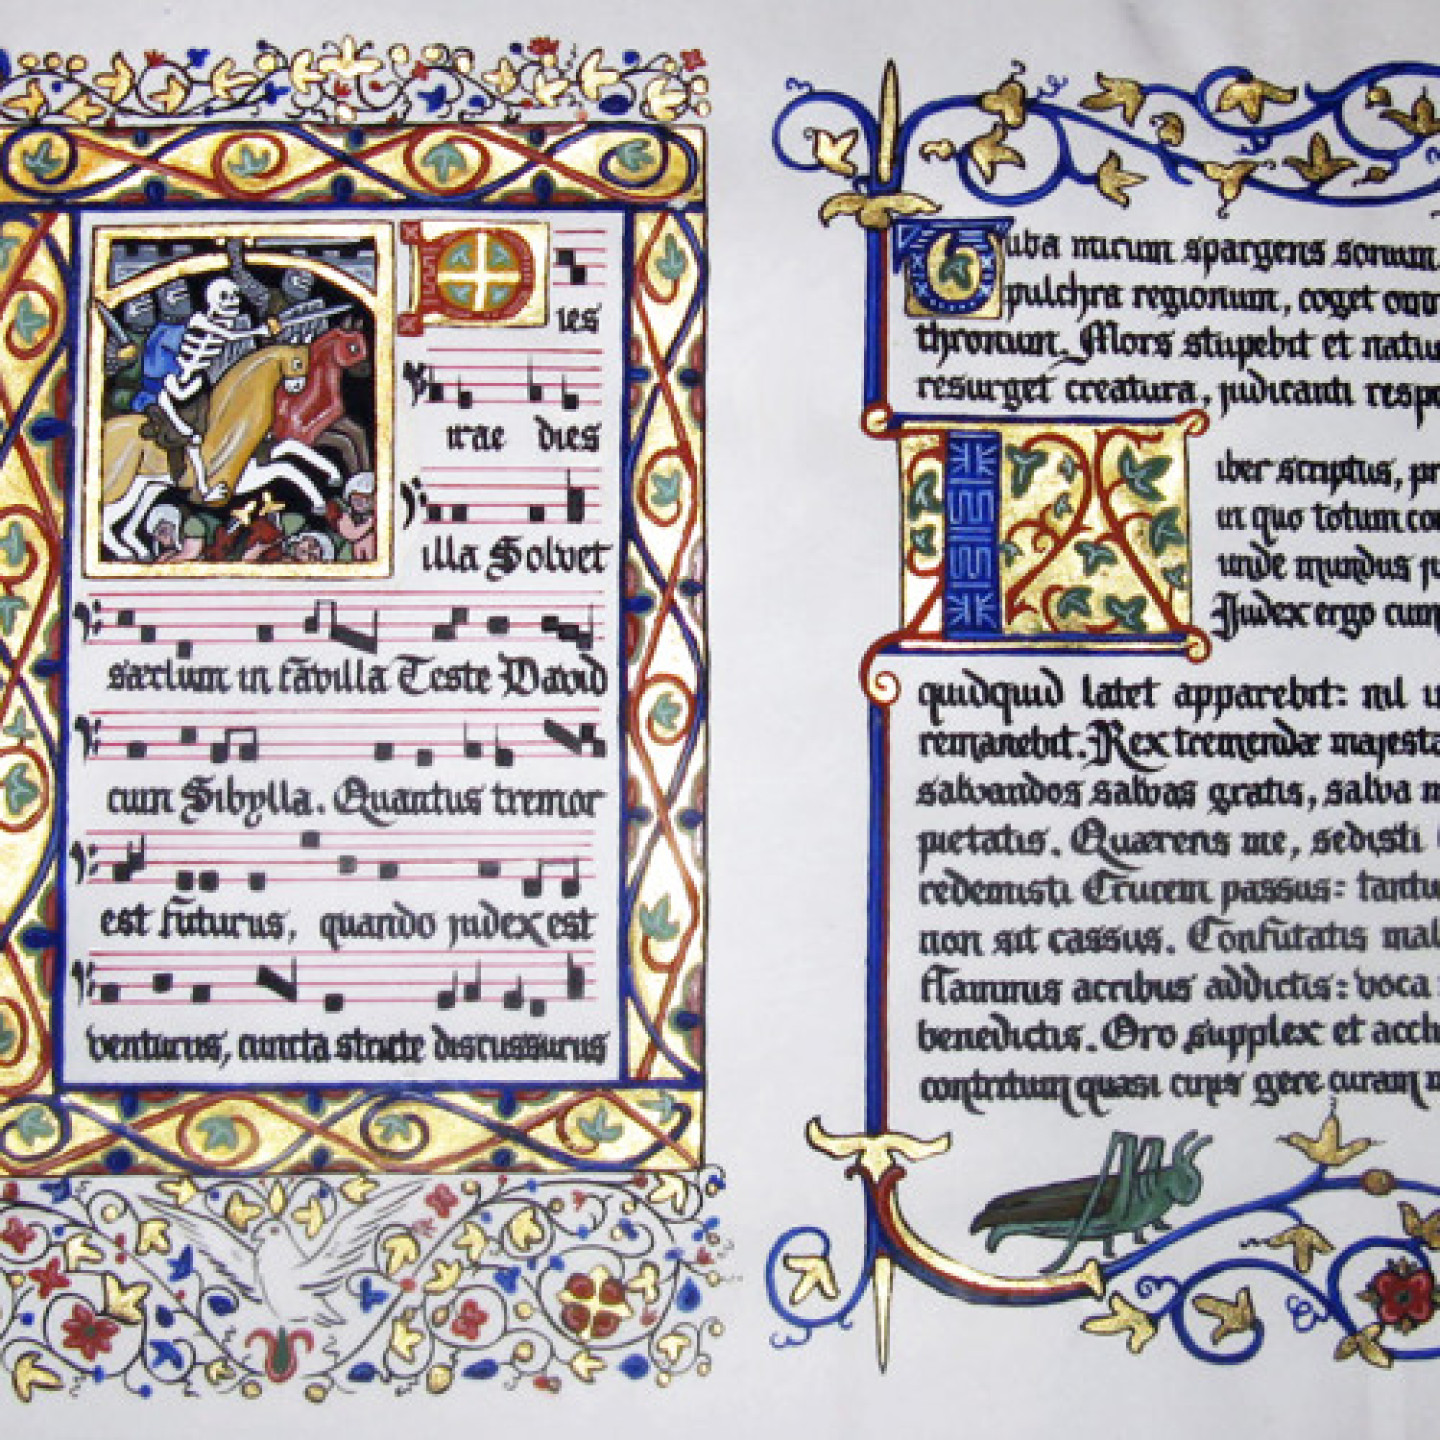 Dies
irae dies
illa Solvet
sæclum in favilla Teste David
cum Sibylla. Quantus tremor
est futurus, quando judex est
venturus, cuncta stricte discussurus
Tuba mirum spargens sonum
pulchra regionum, coget
thronum. Mors stupebit et natu
resurget creatura, judicanti respo
Liber scriptus, pr
in quo totum co
unde mundus ju
Judex ergo cum
quidquid latet apparebit: nil
remanebit. Rex tremendæ majesta
salvandos salvas gratis, salva m
pietatis. Quærens me, sedisti
redemisti Crucem passus: tantu
non sit cassus. Confutatis mal
flammis acribus addictis: voca
benedictis. Oro supplex et accli
contritum quasi cinis gere curam m